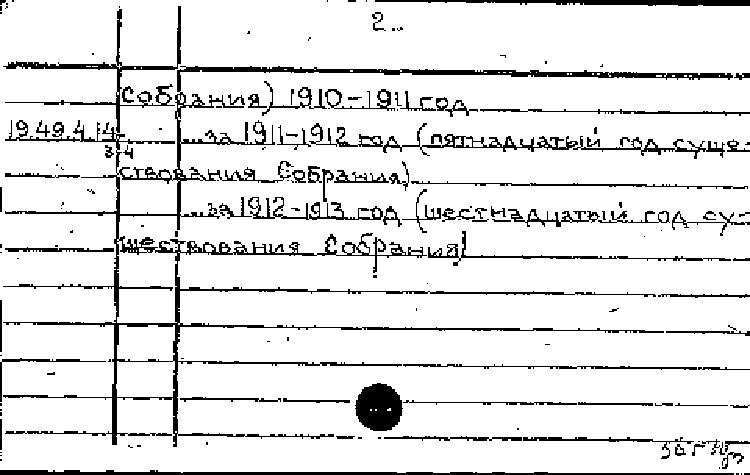 2..
Собрания) 1910-1911 год
19.49.4.14- ...за 1911-1912 год (пятнадчатый год суще-
3-4
ствования Собрания)
...за 1912-1913 год (шестнадцатый год су-
ществования Собрания)